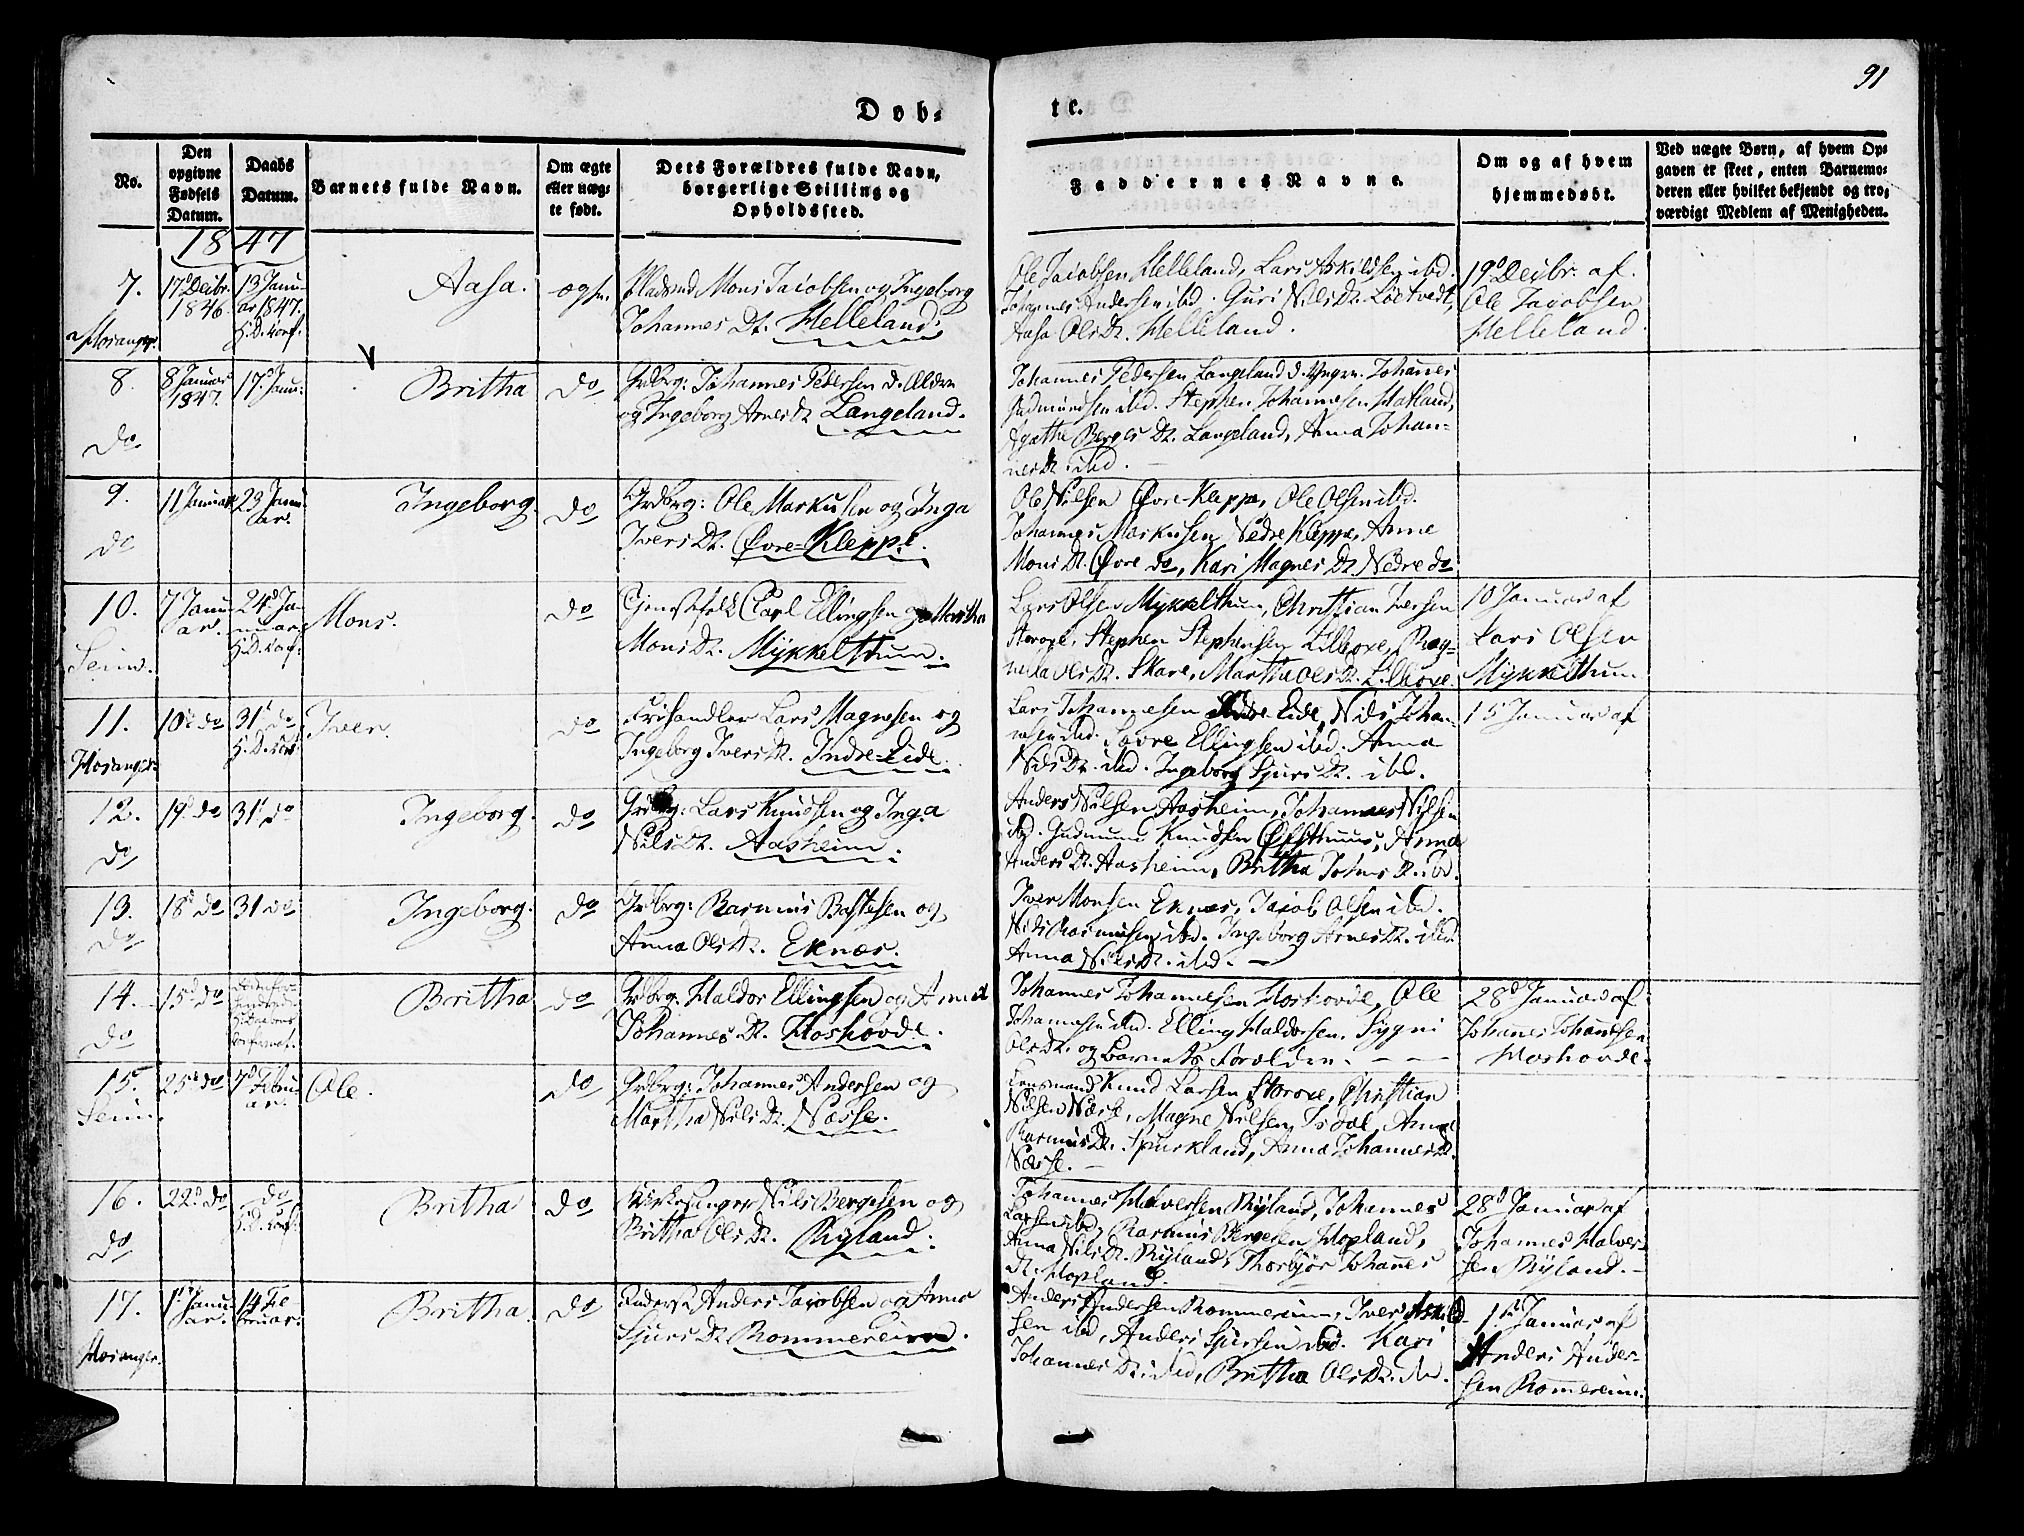 91
Døb-
te.
No.
Den
opgivne
Fødsels
Datum.
Daabs
Datum.
Barnets fulde Navn.
Om ægte
eller uæg-
te født.
Dets Forældres fulde Navn,
borgerlige Stilling og
Opholdssted.
Faddernes Navne.
Om og af hvem
hjemmedøbt.
Ved uægte Børn, af hvem Op-
gaven er skeet, enten Barnemo-
deren eller hvilket bekjendt og tro-
værdigt Medlem af Menigheden.
1847
7.
Hosanger.
17d Decbr.
1846.
13 Janu-
ar 1847.
Aasa.
Mons Jacobsen og Ingeborg
Johannes Dt. Helleland.
Ole Jacobsen Helleland, Lars Askildsen ibd.
Johannes Andersen ibd. Guri Nils Dt. Løtvedt,
Aasa Ols Dt. Helleland.
19d Decbr. af
Ole Jacobsen
Helleland.
8.
do
8 Januar
1847.
17d Janu:
Britha
do
Grdbrg: Johannes Pedersen d. Ældre
og Ingeborg Arnes Dt. Langeland.
Johannes Pedersen Langeland d. Yngre. Johannes
Gudmundsen ibd. Stephen Johannesen Hatland,
Agathe Berges Dt. Langeland, Anna Johan-
nes Dt. ibd.
9.
do
11 Januar
23 Janu-
ar.
Ingeborg.
do
Grdbrg: Ole Markusen og Inga
Ivers Dt. Øvre-Kleppe.
Ole Nilsen Øvre-Kleppe, Ole Olsen ibd.
Johannes Markusen Nedre Kleppe, Anne
Mons Dt. Øvre do, Kari Magnes Dt. Nedre do
10.
Seim.
7 Janu-
ar.
24d Ja-
nuar
Mons.
do
Tjenestefolk Carl Ellingsen og Martha
Mons Dt. Mykkelthun.
Lars Olsen Mykkelthun, Christian Iversen
Storoxe, Stephen Stephensen Lilleoxe, Rag-
nilda Ols Dt. Skare, Martha Ols Dt. Lilleoxe.
10 Januar af
Lars Olsen
Mykkelthun
11.
Hosanger.
10d do
31d do
Iver.
do
Frihandler Lars Magnesen og
Ingeborg Ivers Dt. Indre-Eide.
Lars Johannesen Indre Eide, Nils Johan-
nesen ibd. Sjovre Ellingsen ibd. Anna
Nils Dt. ibd. Ingeborg Sjurs Dt. ibd.
15 Januar af
12.
do
19d do
31d do
Ingeborg.
do
Grdbrg: Lars Knudsen og Inga
Nils Dt. Aasheim.
Anders Nilsen Aasheim, Johannes Nilsen
ibd. Gudmund Knudsen Øffsthuus, Anna
Anders Dt. Aasheim, Britha Johns Dt. ibd.
13.
do
18d do
31 do
Ingeborg.
do
Grdbrg: Rasmus Bastesen og
Anna Ols Dt. Eknæs.
Iver Monsen Eknæs, Jacob Olsen ibd.
Nils Rasmusen ibd. Ingeborg Arnes Dt. ibd.
Anna Nils Dt. ibd.
14.
do
15d do
Britha
do
Grdbrg: Haldor Ellingsen og
Johannes Dt. Hoshovde.
Johannes Johannesen Hoshovde, Ole
Johannesen ibd. Elling Haldorsen. Sygni
Ols Dt. og Barnets Forældre.
28d Januar af
Johannes Johannesen
Hoshovde.
15.
Seim.
25d do
7d Febru-
ar.
Ole.
do
Grdbrg: Johannes Andersen og
Martha Nils Dt. Næsse.
Lensmand Knud Larsen Storoxe, Christian
Nilsen Næsse, Magne Nilsen Isdal, Anna
Rasmus Dt. Spurkland, Anna Johannes Dt.
Næsse.
16.
do
22d do
do
Britha
do
Kirkesanger Nils Bergesen og
Britha Ols Dt. Ryland.
Johannes Halversen Ryland, Johannes
Larsen ibd, Rasmus Bergesen Hopland,
Anna Nils Dt. Ryland, Thorbjør Johannes
Dt. Hopland.
28d Januar af
Johannes Halver-
sen Ryland.
17.
Hosanger.
1ste Janu-
ar.
14 Fe-
bruar.
Britha.
do
Anders Jacobsen og Anna
Sjurs Dt. Rommereim.
Anders Andersen Rommereim, Iver Askild-
sen ibd, Anders Sjursen ibd. Kari
Johannes Dt. ibd, Britha Ols Dt. ibd.
1ste Januar af
Anders Ander-
sen Romereim.